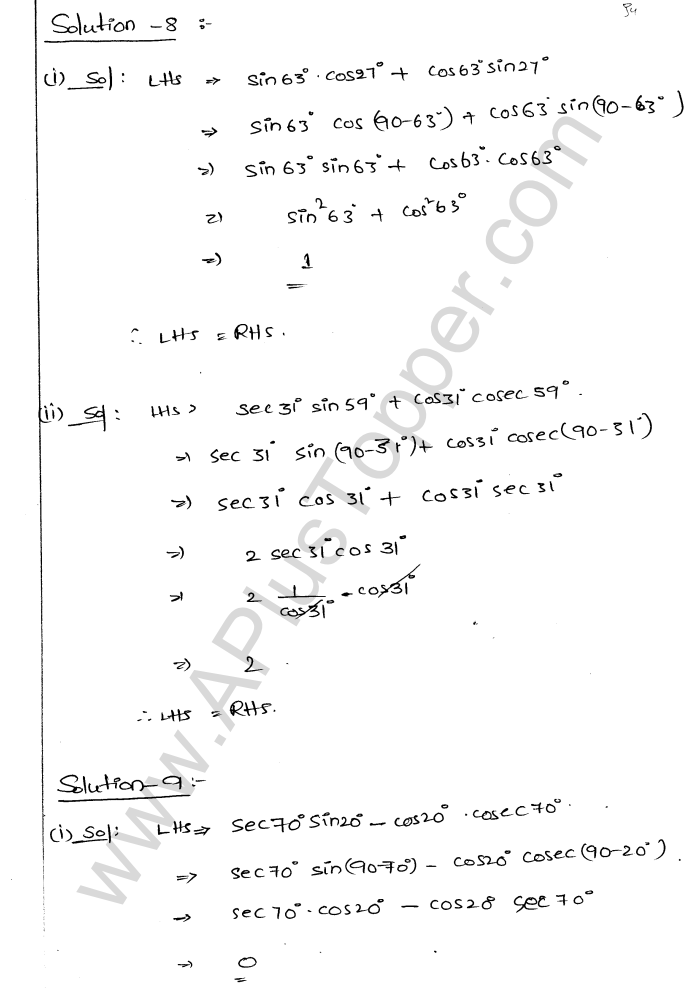 Solution -8 :-
(i) Sol: LHS ⇒ sin63°·cos27° + cos63° sin27°
⇒ sin63° cos (90-63°) + cos63° sin(90-63°)
⇒) sin63° sin63° + cos63°·cos63°
⇒) sin²63° + cos²63°
⇒) 1
∴ LHS = RHS.
(ii) Sol: LHS > sec31° sin59° + cos31° cosec59°.
⇒ sec 31° sin (90-31°) + cos31° cosec(90-31°)
⇒) sec31° cos 31° + cos31° sec31°
⇒) 2 sec31° cos31°
⇒ 2 1/cos31° · cos31°
⇒) 2
∴ LHS = RHS.
Solution-9 :-
(i) Sol: LHS ⇒ sec70° sin20° - cos20°·cosec70°.
⇒ sec70° sin(90-70°) - cos20° cosec(90-20°).
→ sec70°·cos20° - cos20 sec70°
→ 0
www.APlusTopper.com